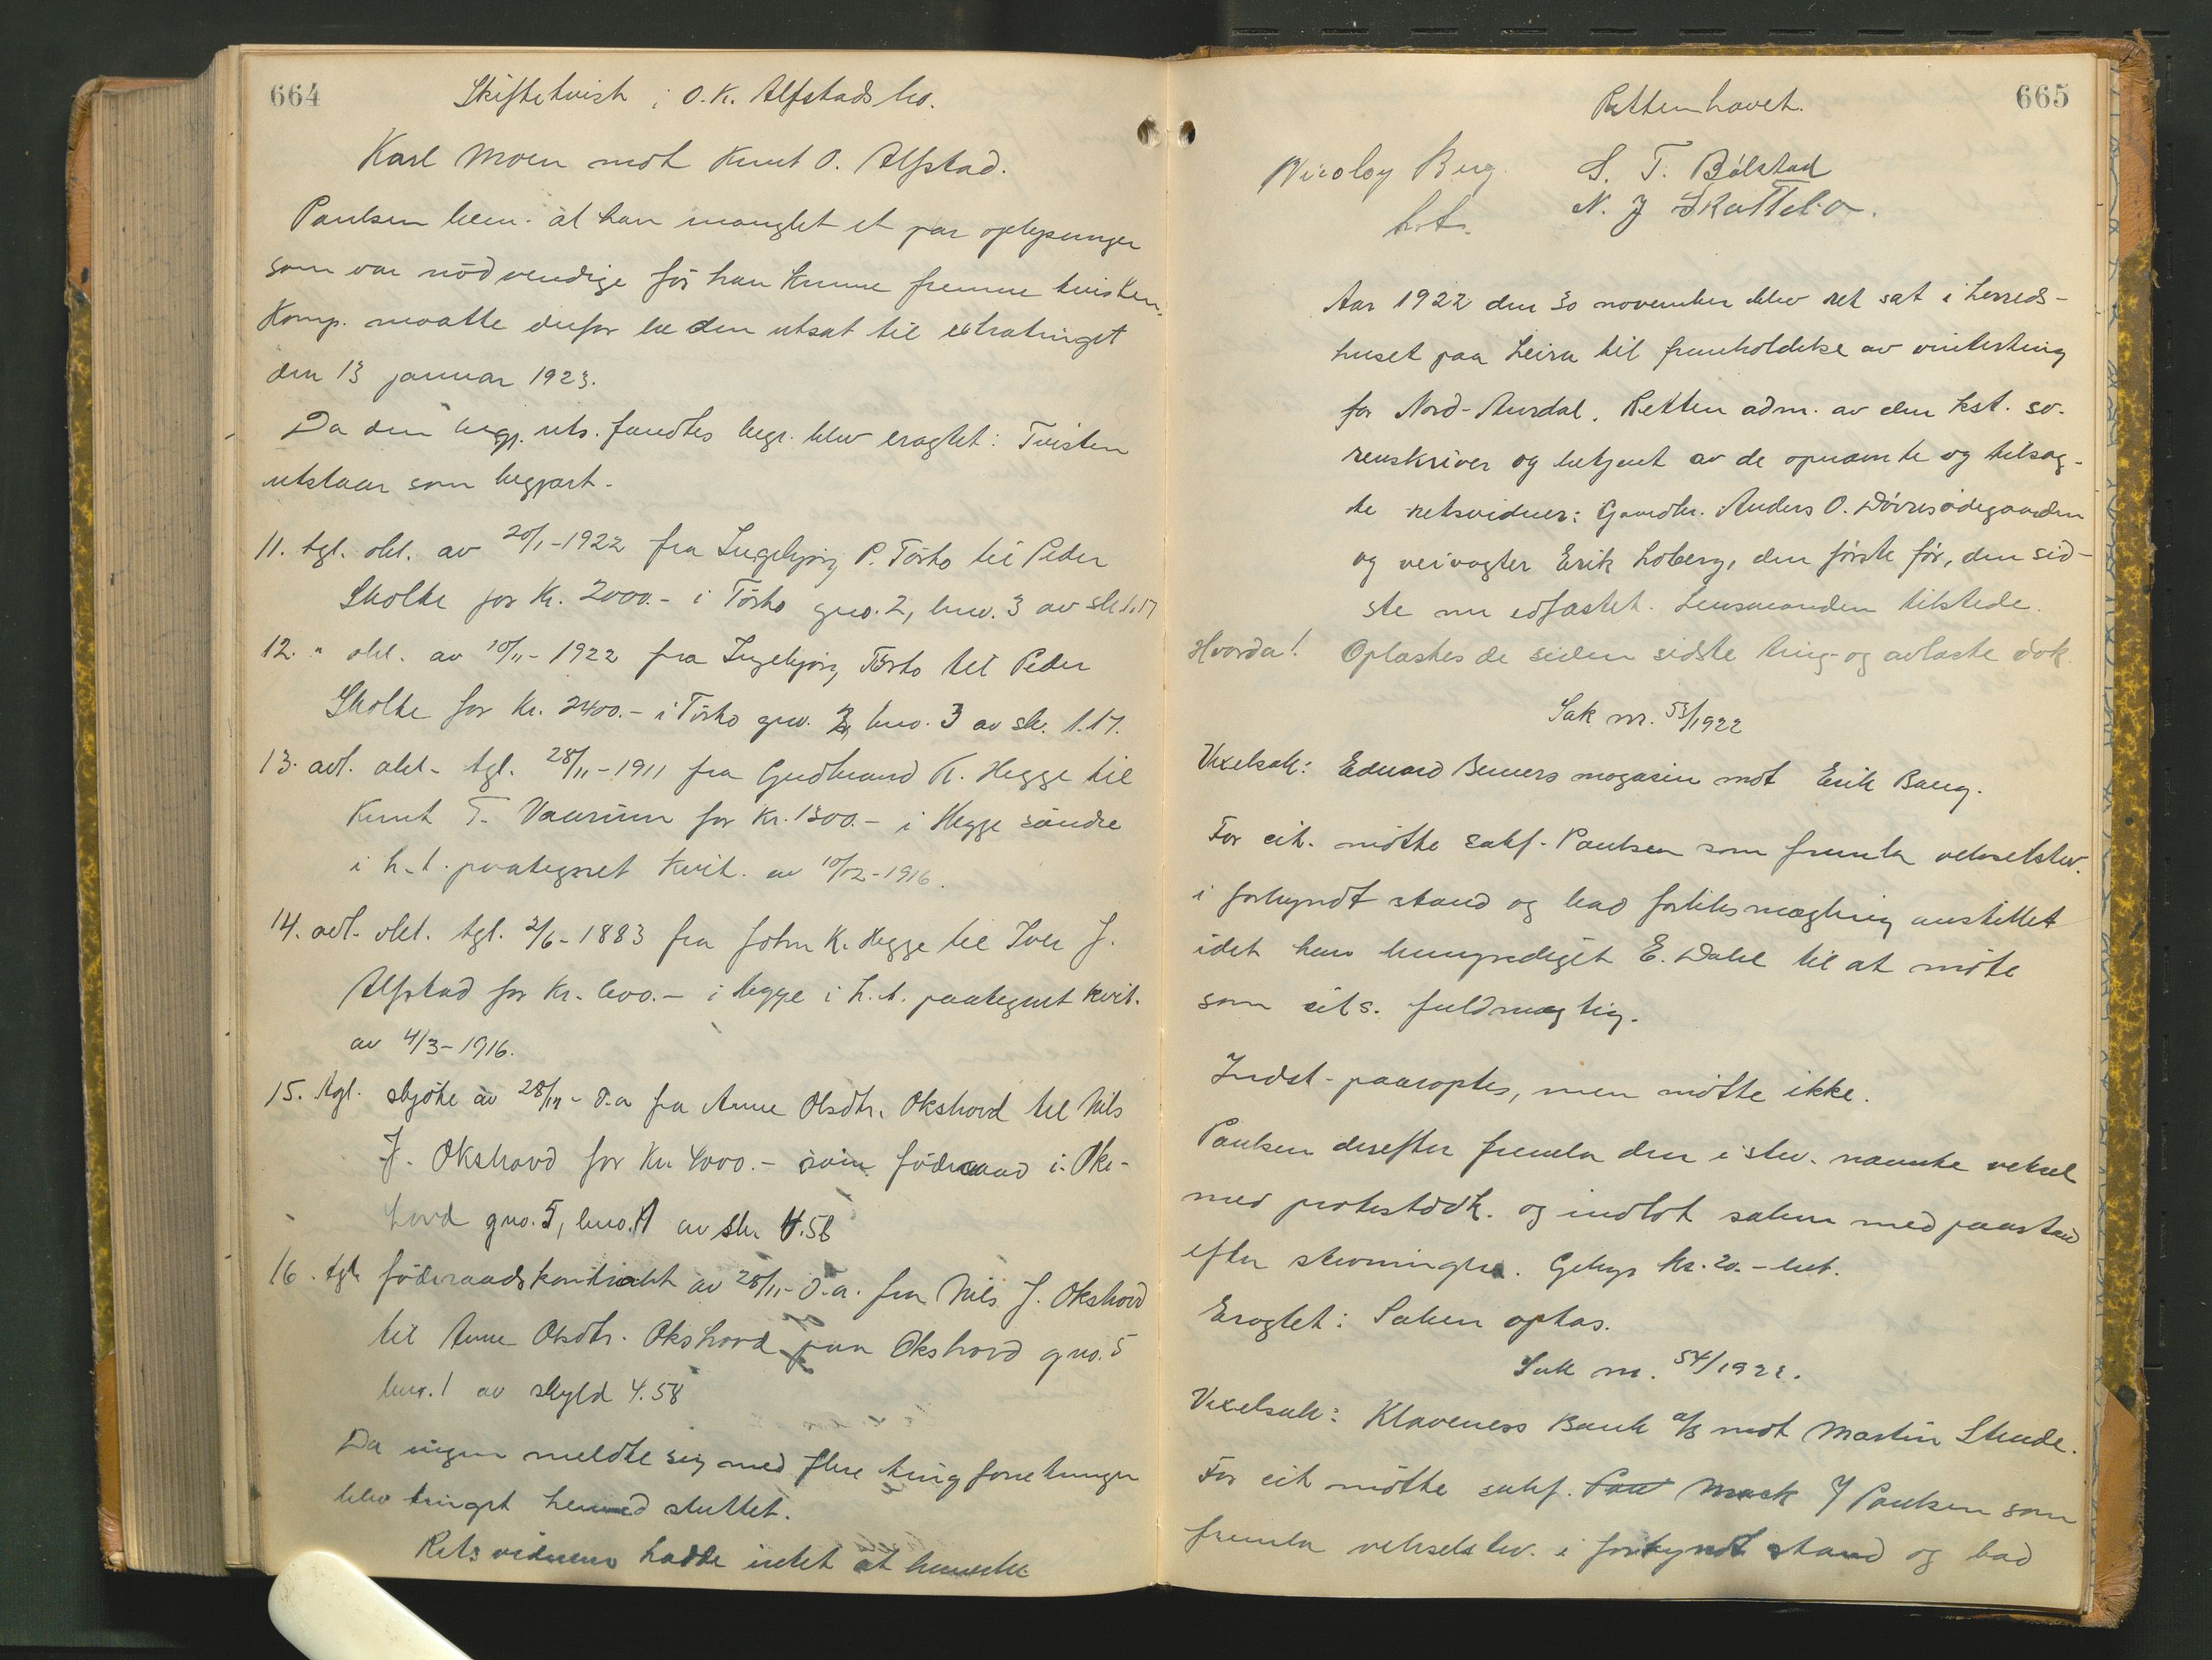 664
Skiftetvist i O. K. Alfstads bo.
Karl Moen mot Knut O. Alfstad.
Paulsen bem. at han manglet et par oplysninger
som var nödvendige för han kunne fremme tvisten.
Komp. maatte derfor be den utsat til extratinget
den 13 januar 1923.
Da den begj. uts. fandtes begr. blev eragtet: Tvisten
utstaar som begjært.
11. tgl. obl. av 20/1-1922 fra Ingebjörg P. Törto til Peder
Skolte for Kr. 2000.- i Törto gno. 2, bno. 3 av sk. 1.17
12. " obl. av 10/11-1922 fra Ingebjörg Törto til Peder
Skolte for Kr. 2400.- i Törto gno. 2, bno. 3 av sk. 1.17.
13. avl. obl. tgl. 28/11-1911 fra Gudbrand K. Hegge til
Knut T. Vaurinn for Kr. 1300.- i Hegge söndre
i h. t. paategnet kvit. av 10/12-1916.
14. avl. obl. tgl. 2/6-1883 fra John K. Hegge til Iver J.
Alfstad for Kr. 600.- i Hegge i h. t. paategnet kvit.
av 4/3-1916.
15. tgl. skjöte av 28/11- d.a fra Anne Olsdtr. Okshovd til Nils
J. Okshovd for Kr 4000.- som föderaad i Oks-
hovd gno. 5, bno. 1 av sk. 4.58
16. tgl. föderaadskontrakt av 28/11- d.a. fra Nils J. Okshovd
til Anne Olsdtr. Okshovd paa Okshovd gno. 5
bno. 1 av skyld 4.58
Da ingen meldte sig med flere tingforretninger
blev tinget hermed sluttet.
Retsvidnene hadde intet at bemerke
665
Retten hævet.
Nicolay Berg S. T. Bölstad
N. J Skattebo.
Aar 1922 den 30 november blev ret sat i herreds-
huset paa Leira til fremholdelse av vinterting
for Nord-Aurdal. Retten adm. av den kst. so-
renskriver og betjent av de opnævnte og tilsag-
te retsvidner: Gaardbr. Anders O. Dövresødegaarden
og veivogter Erik Loberg, den förste för, den sid-
ste nu edfæstet. Lensmanden tilstede.
Hvorda! Oplæstes de siden sidste ting- og avlæste dok
Sak nr. 53/1922
Vexelsak: Edvard Bemers magasin mot Erik Bang.
For cit. mötte sakf. Paulsen som fremla vekselstev.
i forkyndt stand og bad forliksmægling anstillet
idet han bemyndiget E. Dahl til at möte
som cits. fuldmægtig.
Indst. paaroptes, men mötte ikke.
Paulsen derefter fremla den i stev. nævnte veksel
med protestdok. og indlot saken med paastand
efter stevningen. Gebyr kr. 20.- bet.
Eragtet: Saken optas.
Sak nr. 54/1922.
Vexelsak: Klaveness Bank a/s mot Martin Stende.
For cit mötte sakf. Mack J Paulsen som
fremla vekselstev. i forkyndt stand og bad